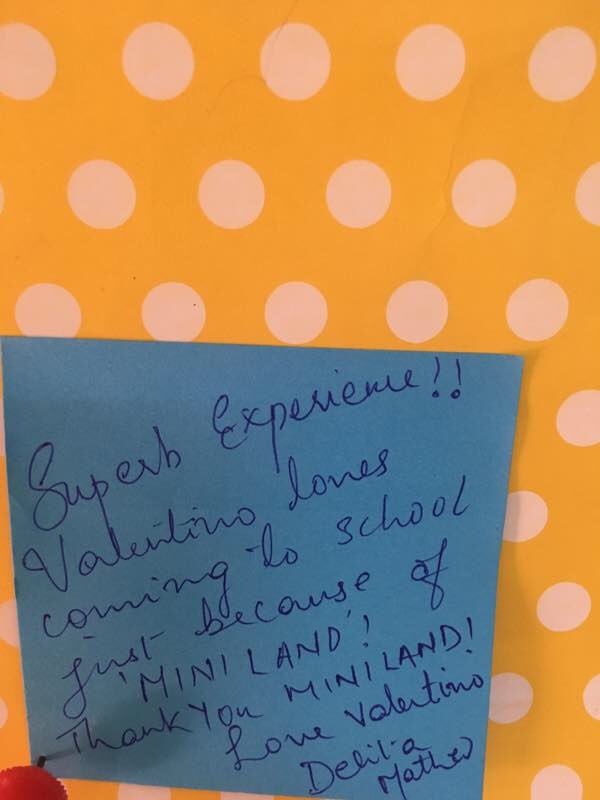 Superb Experience!!
Valentino loves
coming to school
just because of
'MINILAND'!
Thank You MINILAND!
Love Valentino
Delilia